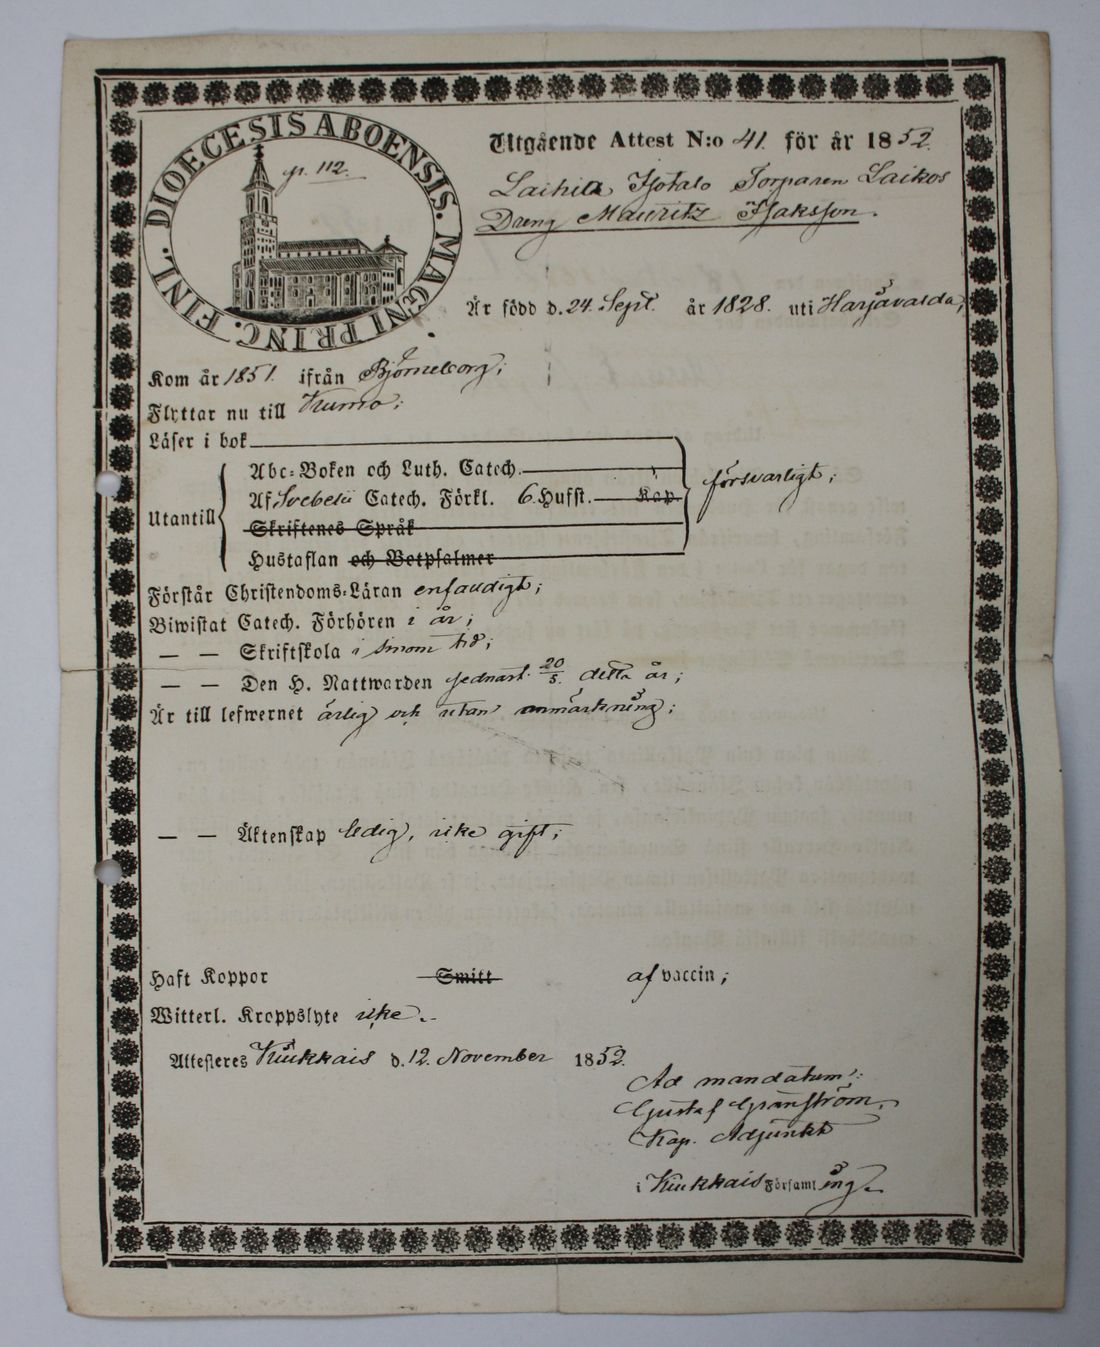 DIOECESIS ABOENSIS. MAGNI PRINC. FINL.
p. 112.
Utgående Attest N:o 41. för år 1852.
Laihila Isotalo Torparen Laikos
Dreng Mauritz Isaksson.
Är född d. 24. Sept. år 1828. uti Harjavalda;
Kom år 1851. ifrån Björneborg;
Flyttar nu till Kumo;
Läser i bok
Abc-Boken och Luth. Catech.
Utantill Af Svebelii Catech. Förkl. 6 Hufst. Kap. försvarligt;
Skriftenes Språk
Hustaflan och Botpsalmer
Förstår Christendoms-Läran enfaldigt;
Biwistat Catech. Förhören i år;
— — Skriftskola i sinom tid;
— — Den H. Nattwarden sednast 20/5. detta år;
Är till lefwernet ärlig och utan anmärkning;
— — Äktenskap ledig, icke gift;
Haft Koppor Smitt af vaccin;
Witterl. Kroppslyte icke.
Attesteres Kiukkais d. 12. November 1852.
Ad mandatum:
Gustaf Granström,
Kap. Adjunkt
i Kiukkais Församling.